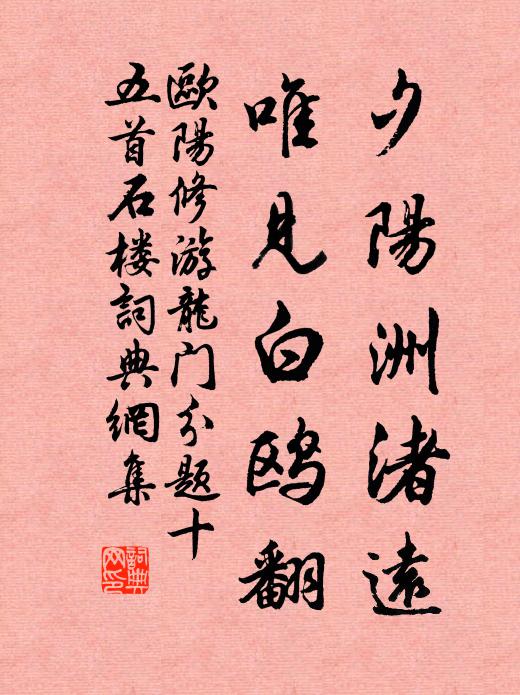 夕陽洲渚遠
唯見白鸥翻
歐陽修游龍门分题十
五首石楼詞典網集
詞典网印